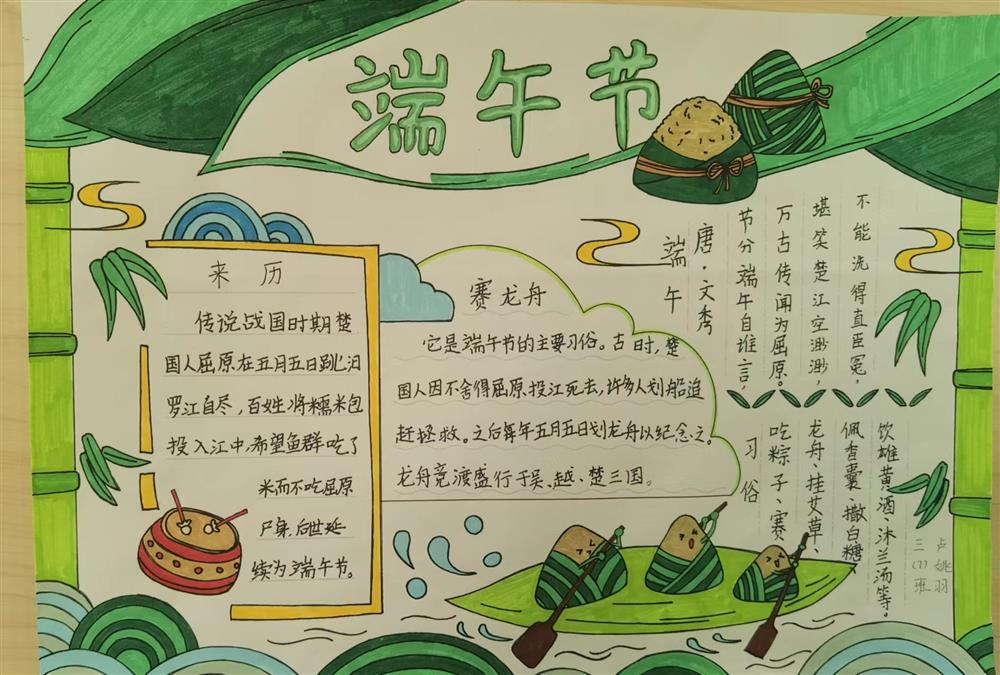 端午节
来历
传说战国时期楚
国人屈原在五月五日跳汨
罗江自尽，百姓将糯米包
投入江中，希望鱼群吃了
米而不吃屈原
尸身，后世延
续为端午节。
赛龙舟
它是端午节的主要习俗。古时，楚
国人因不舍得屈原投江死去，许多人划船追
赶拯救。之后每年五月五日划龙舟以纪念之。
龙舟竞渡盛行于吴、越、楚三国。
端午
唐·文秀
节分端午自谁言，
万古传闻为屈原。
堪笑楚江空渺渺，
不能洗得直臣冤，
习俗
吃粽子、赛
龙舟、挂艾草、
佩香囊、撒白糖、
饮雄黄酒、沐兰汤等。
三(1)班
卢姚羽